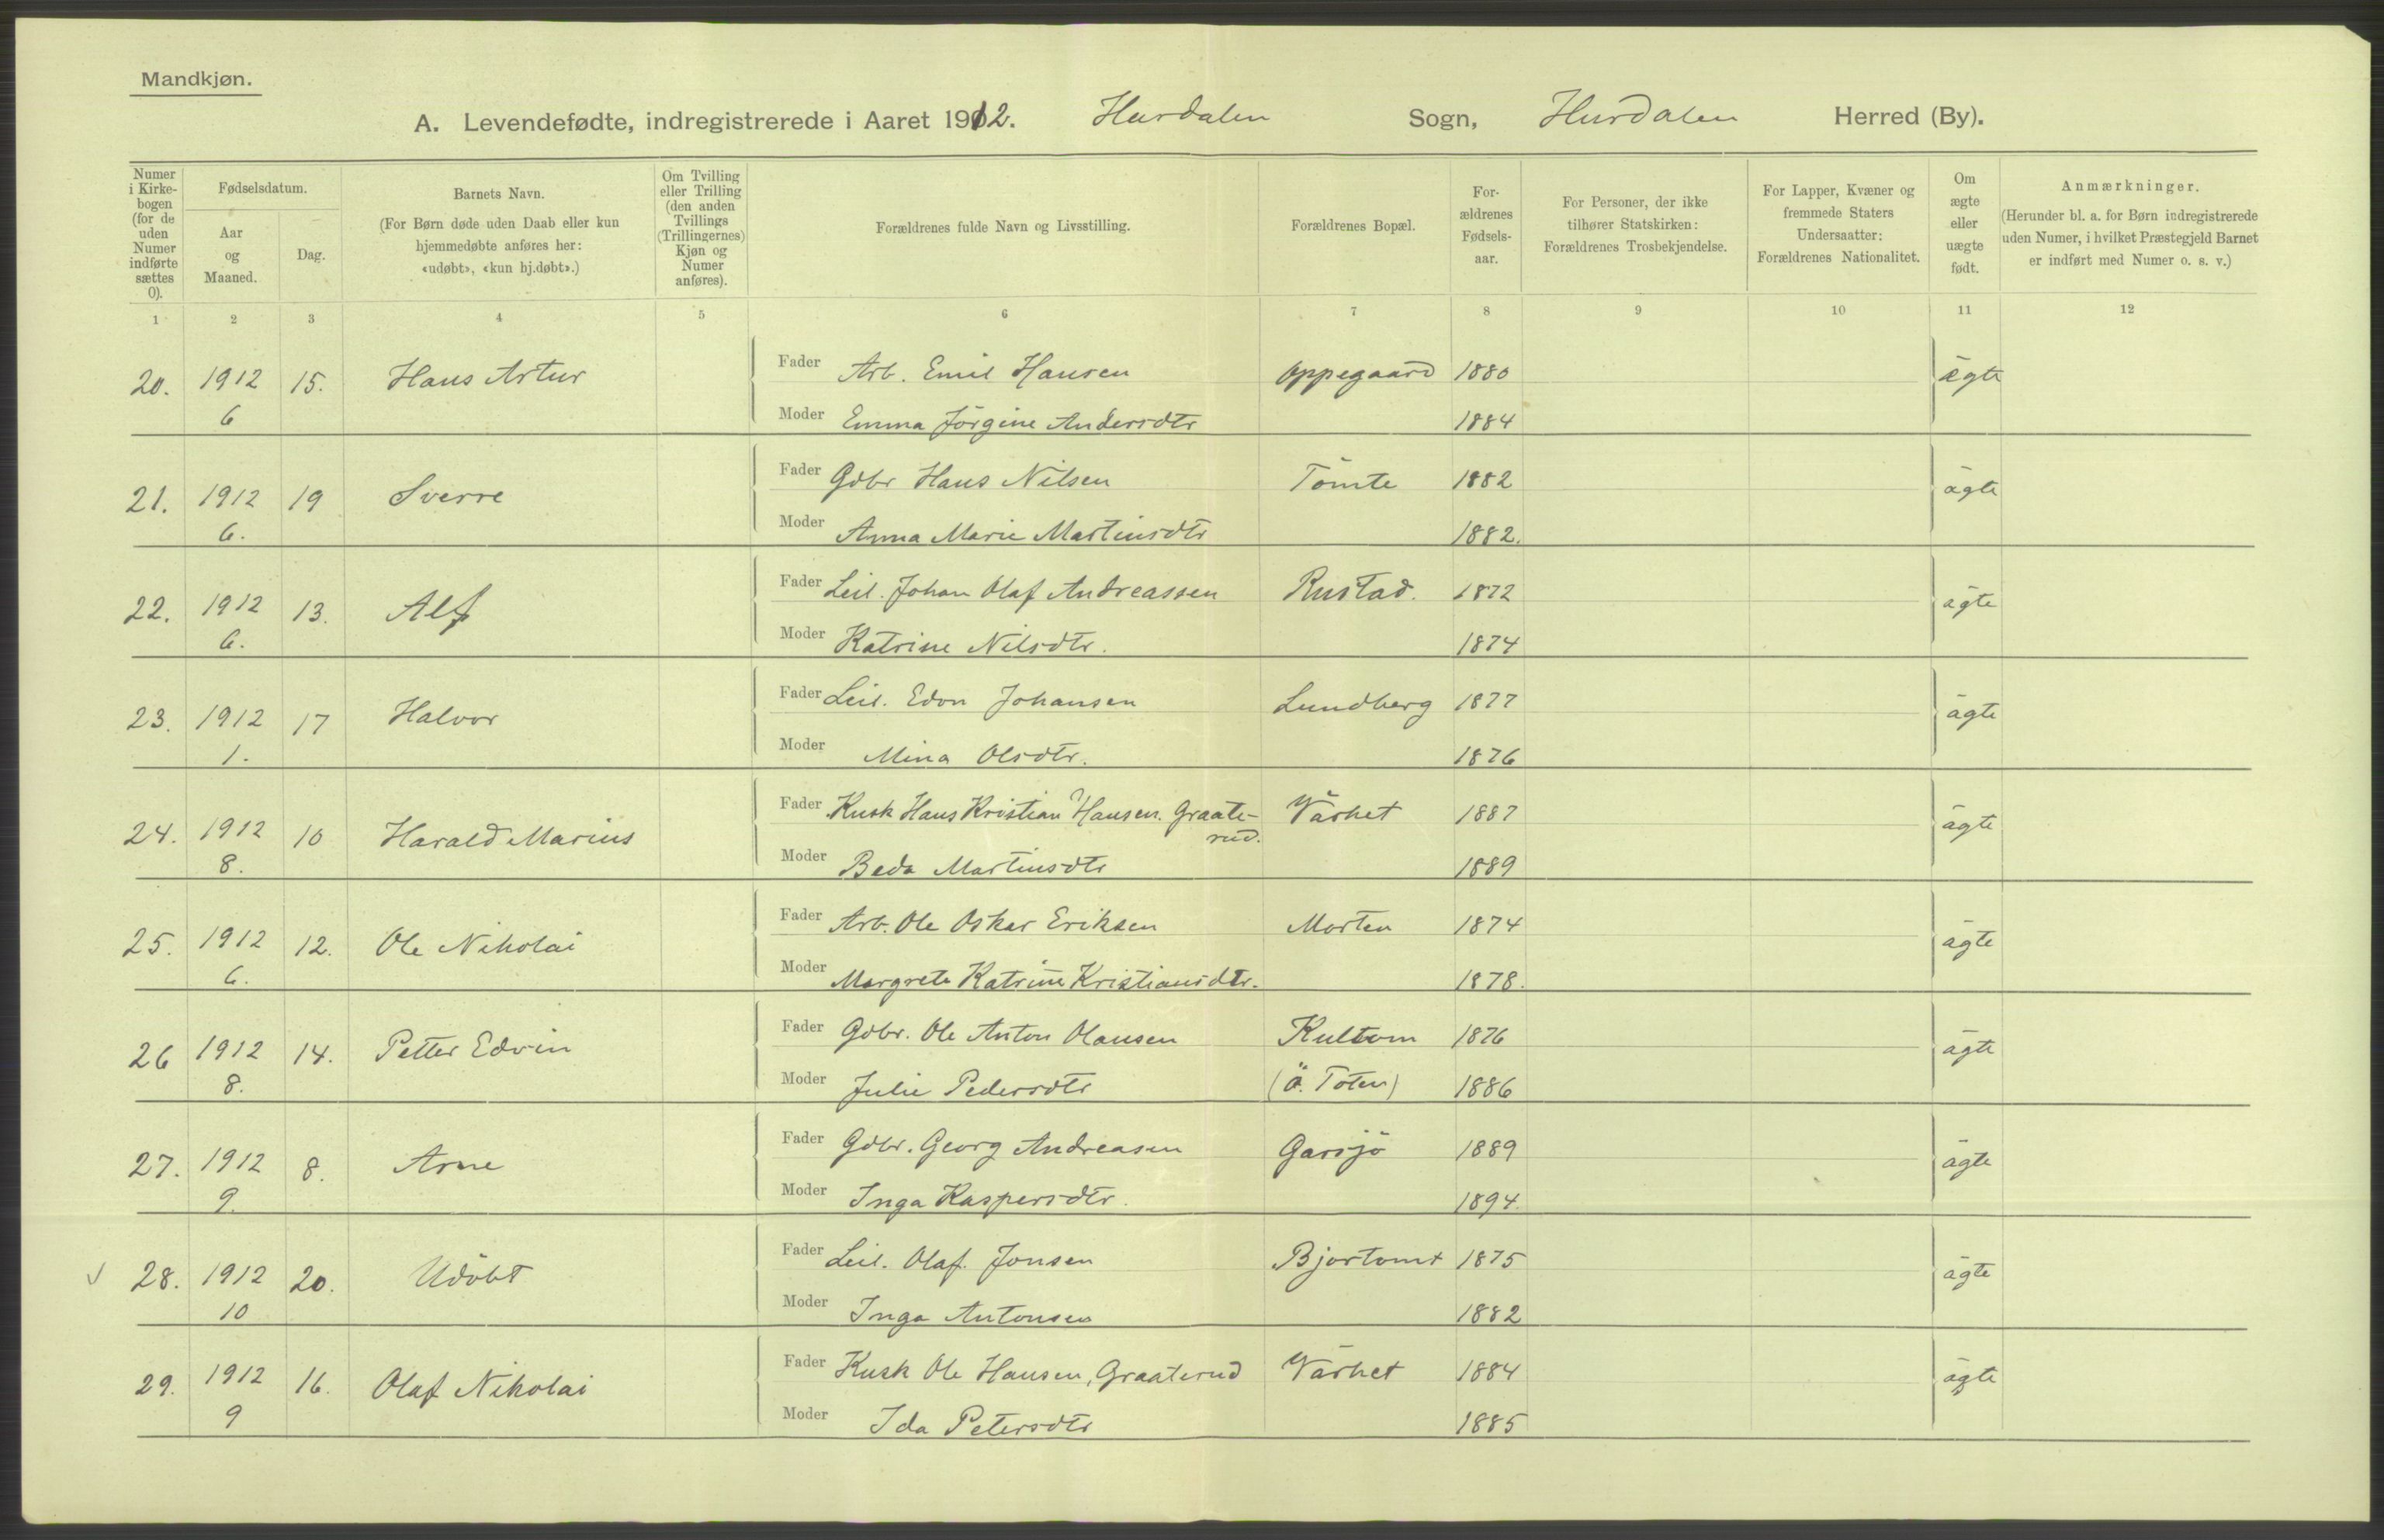 Mandkjøn.
A. Levendefødte, indregistrerede i Aaret 1912. Hurdalen Sogn, Hurdalen Herred (By).
Numer i Kirke-bogen (for de uden Numer indførte sættes 0).
Fødselsdatum.
Aar og Maaned.
Dag.
Barnets Navn.
(For Børn døde uden Daab eller kun hjemmedøbte anføres her: «udøbt», «kun hj.døbt».)
Om Tvilling eller Trilling (den anden Tvillings (Trillingernes) Kjøn og Numer anføres).
Forældrenes fulde Navn og Livsstilling.
Forældrenes Bopæl.
For-ældrenes Fødsels-aar.
For Personer, der ikke tilhører Statskirken: Forældrenes Trosbekjendelse.
For Lapper, Kvæner og fremmede Staters Undersaatter: Forældrenes Nationalitet.
Om ægte eller uægte født.
Anmærkninger.
(Herunder bl. a. for Børn indregistrerede uden Numer, i hvilket Præstegjeld Barnet er indført med Numer o. s. v.)
1 2 3 4 5 6 7 8 9 10 11 12
20. 1912 15. Hans Artur Fader Arb. Emil Hansen Oppegaard 1880 ägte
6 Moder Emma Jörgine Andersdtr 1884
21. 1912 19 Sverre Fader Gdbr Hans Nilsen Tömte 1882 ägte
6. Moder Anna Marie Martinsdtr 1882.
22. 1912 13. Alf Fader Leil. Johan Olaf Andreassen Rustad. 1872 ägte
6. Moder Katrine Nilsdtr. 1874
23. 1912 17 Halvor Fader Leil. Edvn Johansen Lundberg 1877 ägte
1. Moder Mina Olsdtr. 1876
24. 1912 10 Harald Marius Fader Kusk Hans Kristian Hansen. Graate- Värket 1887 ägte
rud.
8. Moder Beda Martinsdtr 1889
25. 1912 12. Ole Nikolai Fader Arb. Ole Oskar Eriksen Morten 1874 ägte
6. Moder Margrete Katrine Kristiansdtr. 1878.
26 1912 14. Petter Edvin Fader Gdbr. Ole Anton Olausen Kultom 1876 ägte
8. Moder Julie Pedersdtr (Ö. Toten) 1886
27. 1912 8. Arne Fader Gdbr. Georg Andreasen Garsjö 1889 ägte
9. Moder Inga Kaspersdtr. 1894.
28. 1912 20. Udöbt Fader Leil. Olaf. Jonsen Bjortomt 1875 ägte
10 Moder Inga Antonsen 1882
29. 1912 16. Olaf Nikolai Fader Kusk Ole Hansen, Graaterud Värket 1884 ägte
9 Moder Ida Petersdtr 1885